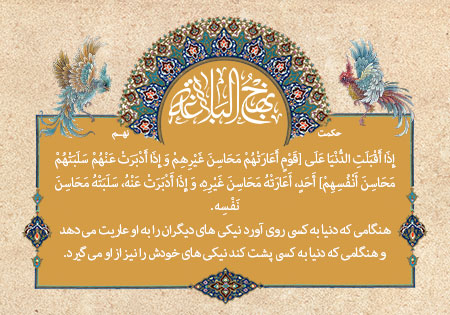 نهج البلاغه
حکمت نهم
إِذَا أَقْبَلَتِ الدُّنْيَا عَلَى [قَوْمٍ أَعَارَتْهُمْ مَحَاسِنَ غَيْرِهِمْ وَ إِذَا أَدْبَرَتْ عَنْهُمْ سَلَبَتْهُمْ
مَحَاسِنَ أَنْفُسِهِمْ] أَحَدٍ، أَعَارَتْهُ مَحَاسِنَ غَيْرِهِ، وَ إِذَا أَدْبَرَتْ عَنْهُ، سَلَبَتْهُ مَحَاسِنَ
نَفْسِه.
هنگامی که دنیا به کسی روی آورد نیکی های دیگران را به او عاریت می دهد
و هنگامی که دنیا به کسی پشت کند نیکی های خودش را نیز از او می گیرد.